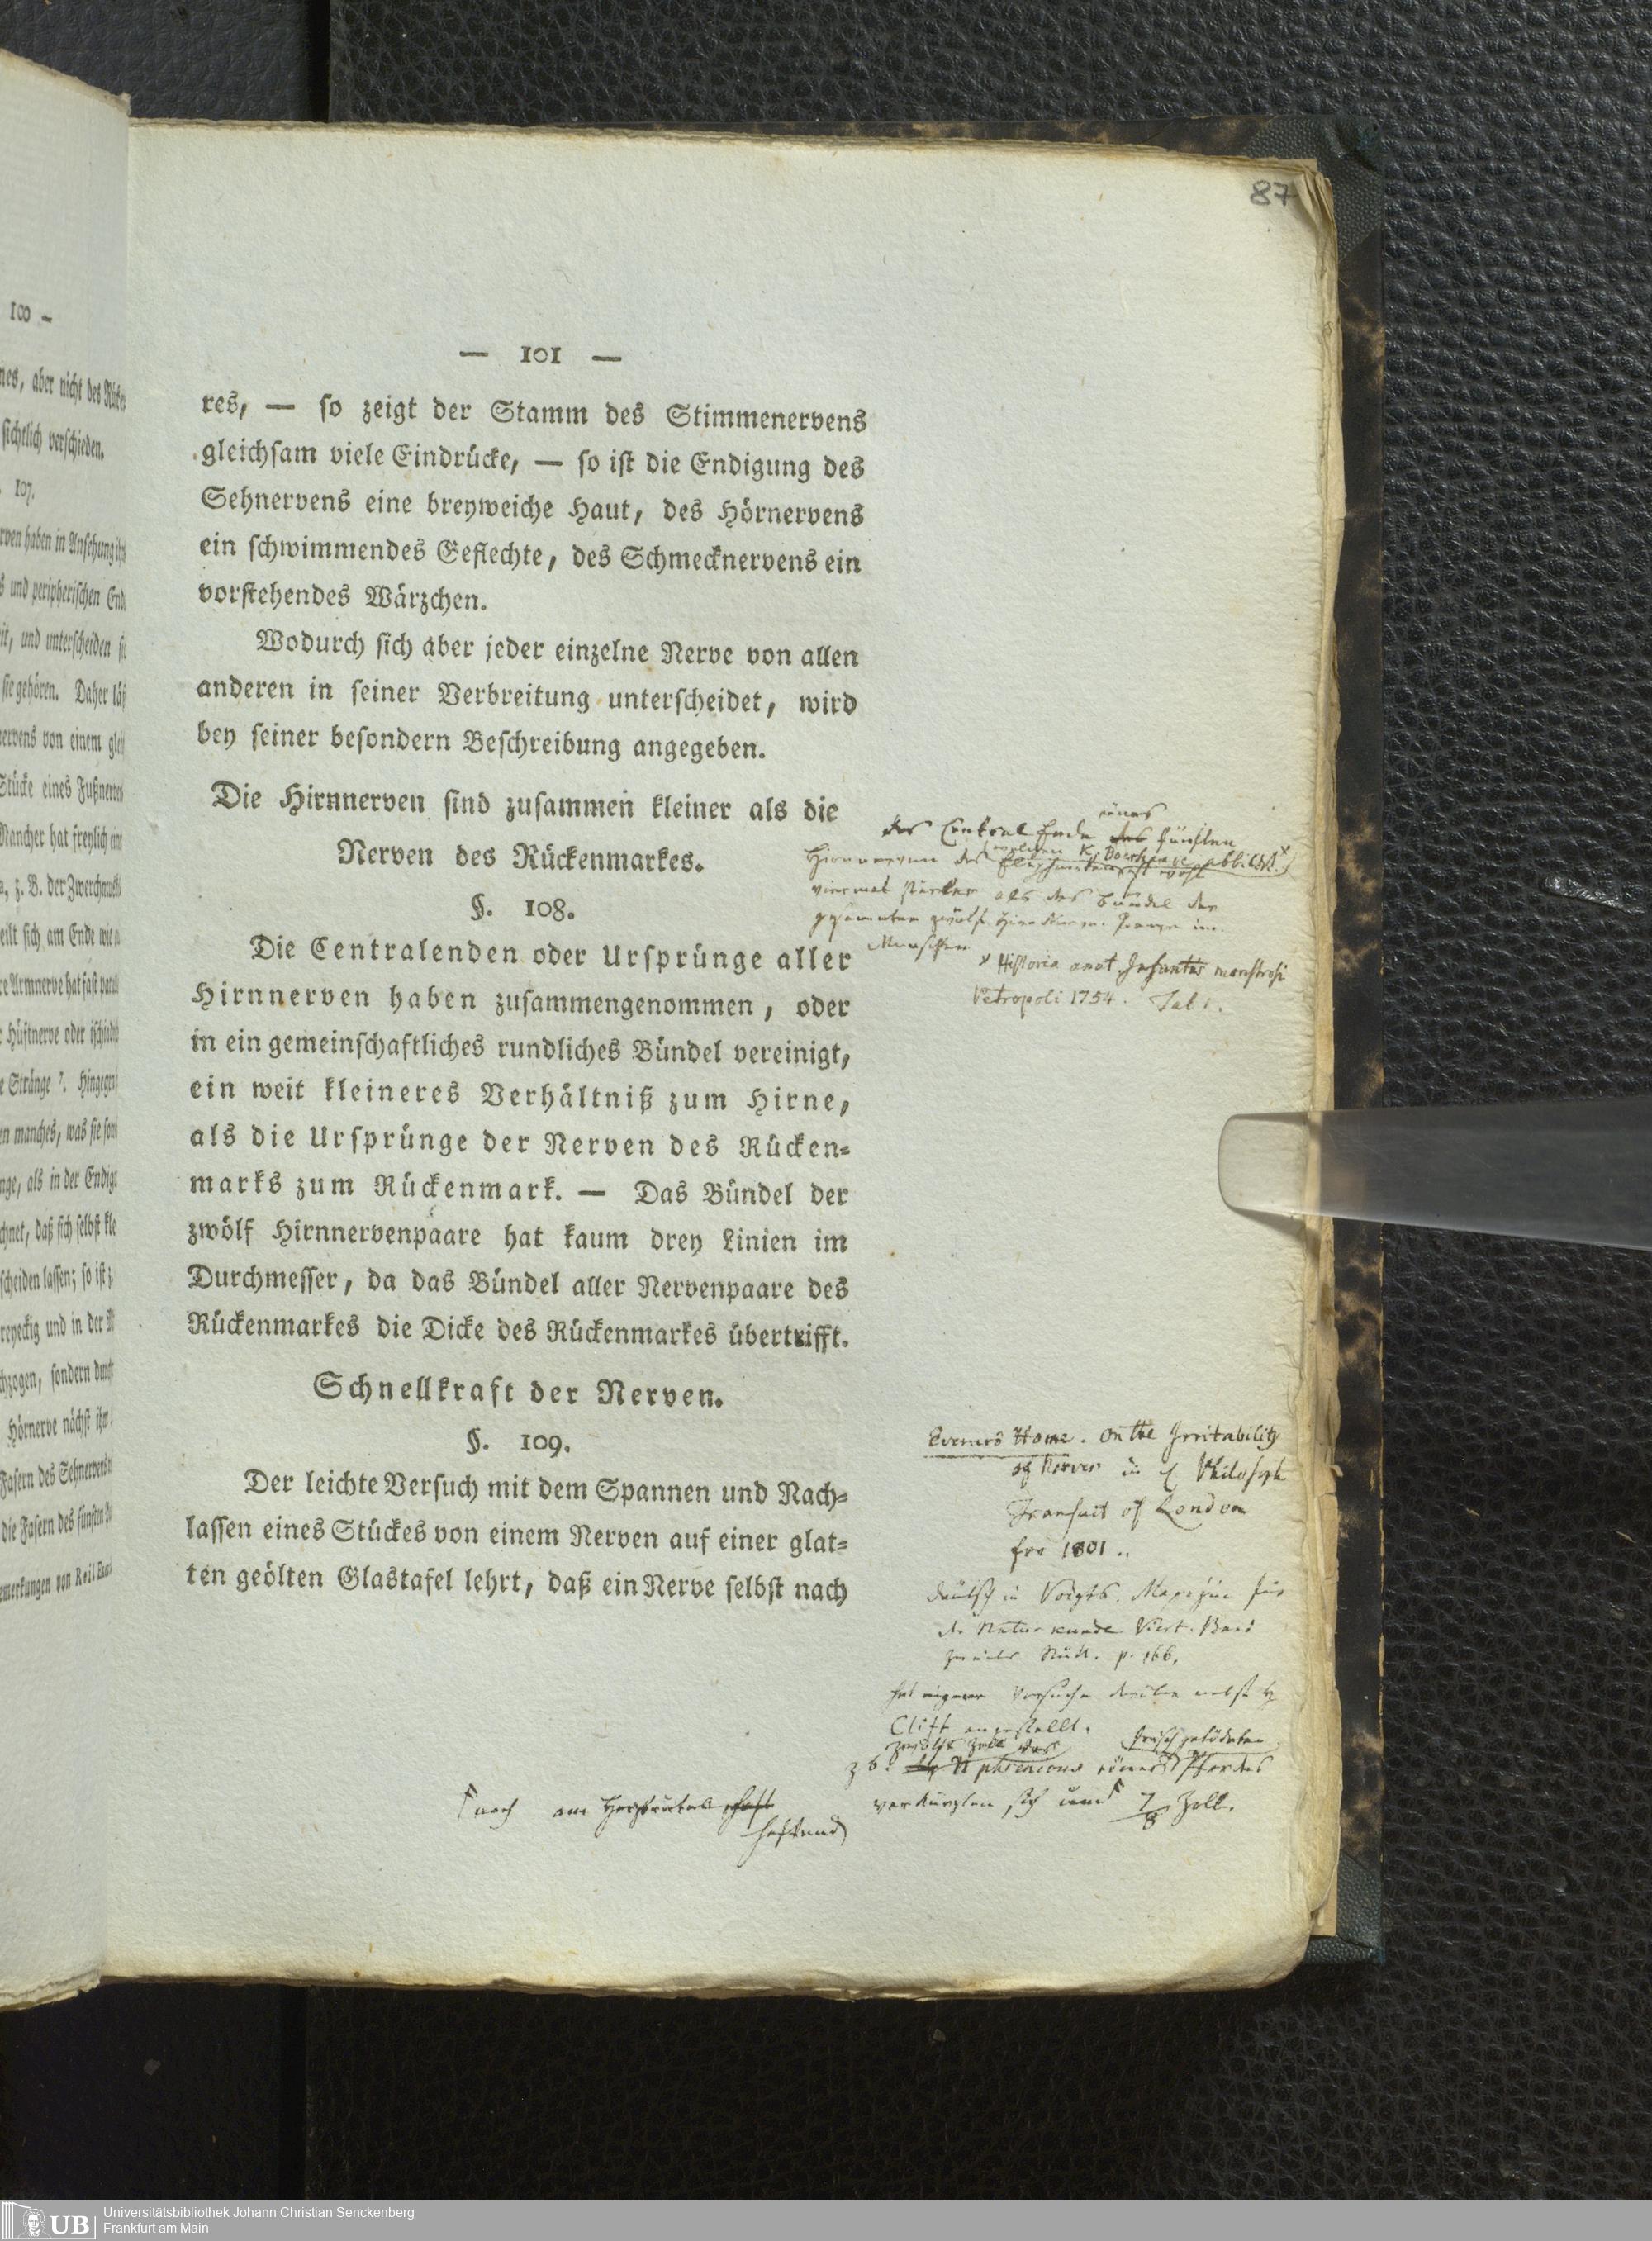 87
100 –
nes, aber nicht des Rücken
sichtlich verschieden.
107.
rven haben in Ansehung ihr
s und peripherischen End
it, und unterscheiden si
sie gehören. Daher läs
nervens von einem glei
Stücke eines Fußnerven
Mancher hat freylich ein
z. B. der Zwerchmusk
eilt sich am Ende wie
re Armnerve hat fast
r Hüftnerve oder
e Stränge ⁷. Hingegen
en manches, was sie
nge, als in der Endig
chnet, daß sich selbst kle
scheiden lassen; so ist
reyeckig und in der
hzogen, sondern durch
Hörnerve nächst ihm
Fasern des Sehnerven
die Fasern des fünften
emerkungen von Reil
— 101 —
res, — so zeigt der Stamm des Stimmenervens
gleichsam viele Eindrücke, — so ist die Endigung des
Sehnervens eine breyweiche Haut, des Hörnervens
ein schwimmendes Geflechte, des Schmecknervens ein
vorstehendes Wärzchen.
Wodurch sich aber jeder einzelne Nerve von allen
anderen in seiner Verbreitung unterscheidet, wird
bey seiner besondern Beschreibung angegeben.
Die Hirnnerven sind zusammen kleiner als die
Nerven des Rückenmarkes.
§. 108.
Die Centralenden oder Ursprünge aller
Hirnnerven haben zusammengenommen, oder
in ein gemeinschaftliches rundliches Bündel vereinigt,
ein weit kleineres Verhältniß zum Hirne,
als die Ursprünge der Nerven des Rücken-
marks zum Rückenmark. — Das Bündel der
zwölf Hirnnervenpaare hat kaum drey Linien im
Durchmesser, da das Bündel aller Nervenpaare des
Rückenmarkes die Dicke des Rückenmarkes übertrifft.
Schnellkraft der Nerven.
§. 109.
Der leichte Versuch mit dem Spannen und Nach-
lassen eines Stückes von einem Nerven auf einer glat-
ten geölten Glastafel lehrt, daß ein Nerve selbst nach
eines
das Central Ende des fünften
welchen K. Boerhaave abbildet
Hirnnerven des Elephanten ist wohl
viermal stärker als das Bündel der
gesammten zwölf Hirnnerven Paare im
Menschen
x Historia anat. Infantis monstrosi
Petropoli 1754. Tab 1.
Everard Home. On the Irritability
of Nerves in Philosoph
Transact of London
for 1801..
deutsch in Voigts. Magazin für
die Naturkunde Viert. Band
zweites Stück. p. 166.
hat eigene Versuche darüber nebst
Clift angestellt.
zwölf Zoll des frisch getödteten
z b. N phrenicus eines Pferdes
verkürzten sich um 7/8 Zoll.
noch am Herzbeutel
haftend
Universitätsbibliothek Johann Christian Senckenberg
Frankfurt am Main
UB